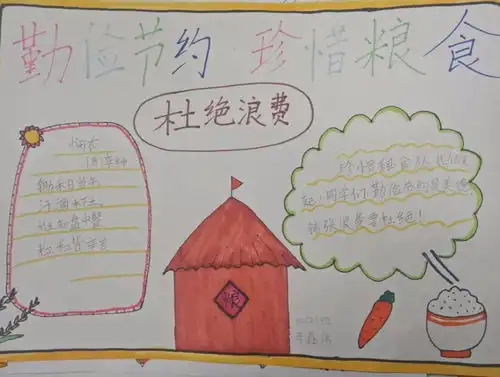 勤俭节约 珍惜粮食
杜绝浪费
悯农
锄禾日当午
汗滴禾下土
谁知盘中餐
粒粒皆辛苦
珍惜粮食从我做
起!同学们勤俭节约是美德
铺张浪费要杜绝!
粮